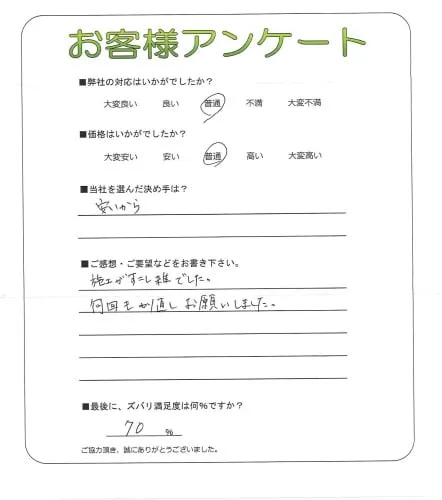 お客様アンケート
■弊社の対応はいかがでしたか？
大変良い　良い　普通　不満　大変不満
■価格はいかがでしたか？
大変安い　安い　普通　高い　大変高い
■当社を選んだ決め手は？
安いから
■ご感想・ご要望などをお書き下さい。
施工がすこし雑でした。
何回も手直しお願いしました。
■最後に、ズバリ満足度は何％ですか？
70 ％
ご協力頂き、誠にありがとうございました。